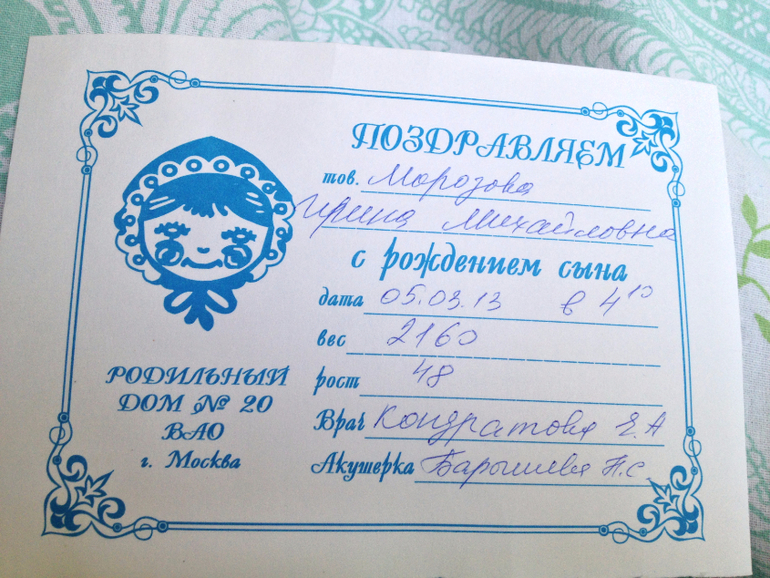 ПОЗДРАВЛЯЕМ
тов. Морозова
Ирина Михайловна
с рождением сына
дата 05.03.13 в 4 10
вес 2160
рост 48
Врач Кондратова Е.А
Акушерка Барышева Н.С
РОДИЛЬНЫЙ
ДОМ № 20
ВАО
г. Москва